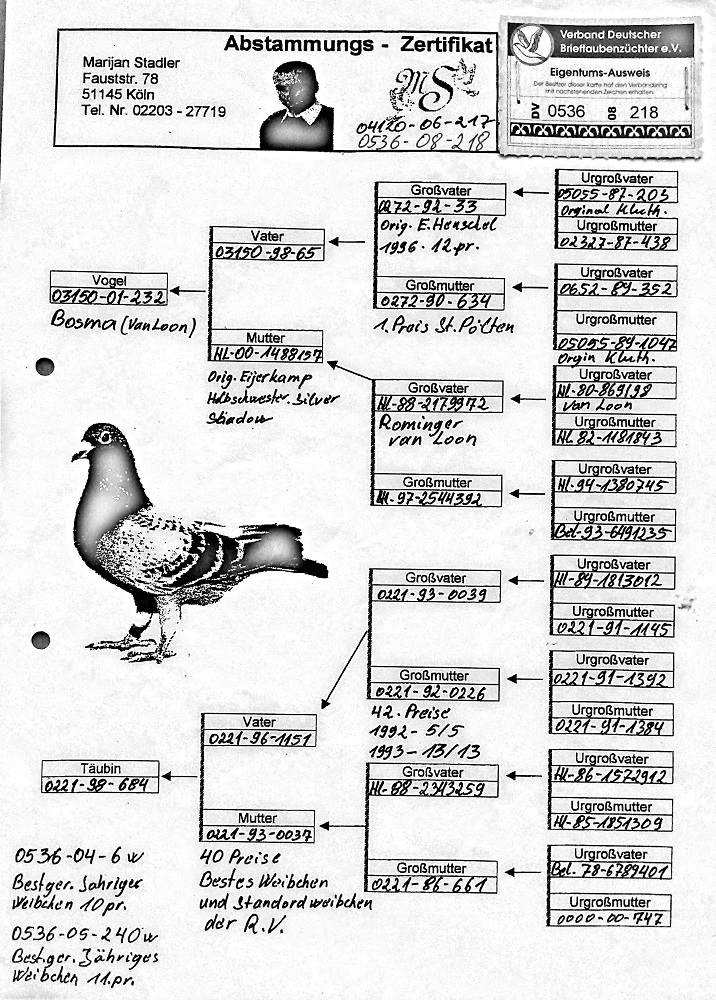 Abstammungs - Zertifikat
Marijan Stadler
Fauststr. 78
51145 Köln
Tel. Nr. 02203 - 27719
MS
04120-06-217
0536-08-218
Verband Deutscher
Brieftaubenzüchter e.V.
Eigentums-Ausweis
Der Besitzer dieser Karte hat den Verbandsring
mit nachstehenden Zeichen erhalten.
DV 0536 08 218
Vogel
03150-01-232
Bosma (Van Loon)
Vater
03150-98-65
Mutter
NL-00-1488157
Orig. Eijerkamp
Halbschwester. Silver
Shadow
Großvater
0272-92-33
Orig. E. Henschel
1996. 12.pr.
Großmutter
0272-90-634
1. Preis St. Pölten
Großvater
NL-88-2179972
Rominger
van Loon
Großmutter
NL-97-2544392
Urgroßvater
05055-87-203
Orginal Kluth.
Urgroßmutter
02327-87-438
Urgroßvater
0652-89-352
Urgroßmutter
05055-89-1047
Orgin Kluth.
Urgroßvater
NL-80-869198
van Loon
Urgroßmutter
NL 82-1181843
Urgroßvater
NL-94-1380745
Urgroßmutter
Bel-93-6491235
Täubin
0221-98-684
Vater
0221-96-1151
Mutter
0221-93-0037
40 Preise
Bestes Weibchen
und Standardweibchen
der R.V.
Großvater
0221-93-0039
Großmutter
0221-92-0226
42. Preise
1992 - 5/5
1993 - 13/13
Großvater
NL-88-2343259
Großmutter
0221-86-661
Urgroßvater
NL-89-1813012
Urgroßmutter
0221-91-1145
Urgroßvater
0221-91-1392
Urgroßmutter
0221-91-1384
Urgroßvater
NL-86-1572912
Urgroßmutter
NL-85-1851309
Urgroßvater
Bel. 78-6789401
Urgroßmutter
0000-00-747
0536-04-6 w
Best ger. Jahriger
Weibchen 10 pr.
0536-05-240 w
Best.ger. Jähriges
Weibchen 11.pr.